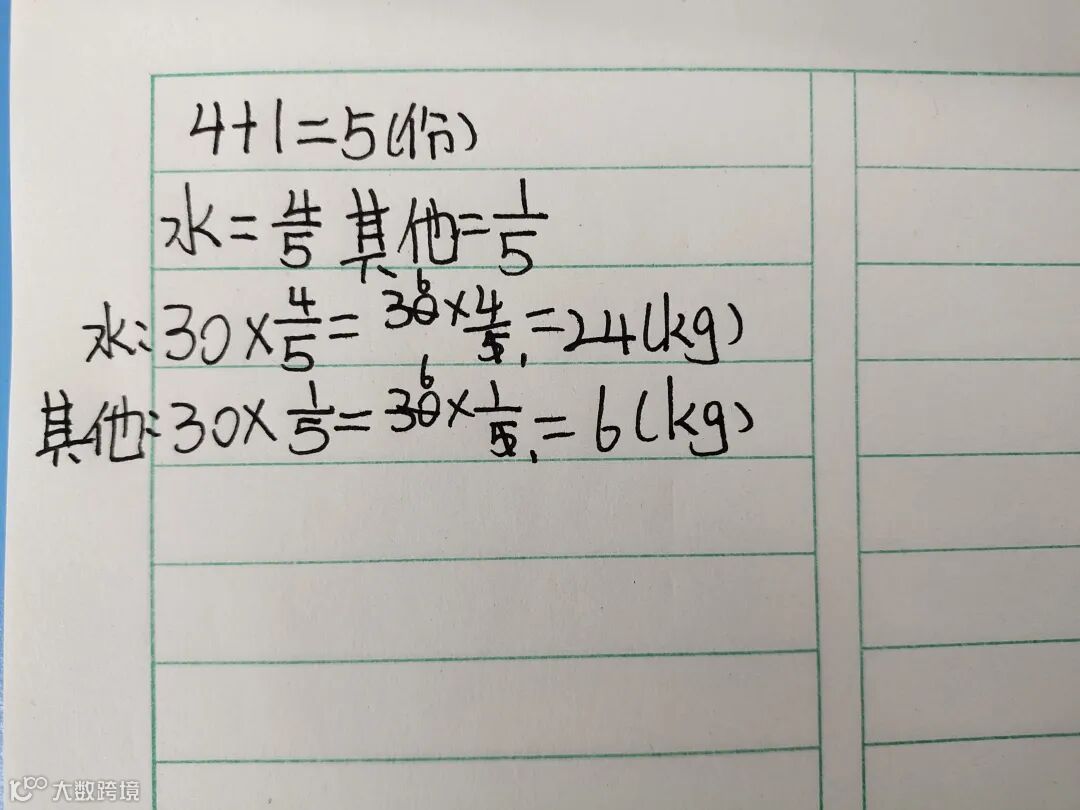 4+1=5(份)
水=4/5 其他=1/5
水:30×4/5=30×4/5=24(kg)
6
1
其他:30×1/5=30×1/5=6(kg)
6
1
大数跨境